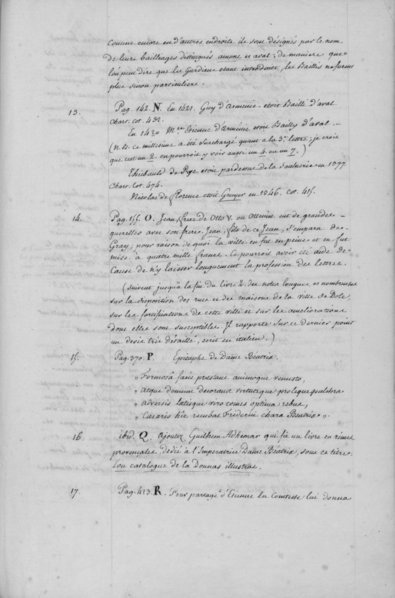 comme encore en d'autres endroits ils sont désignés par le nom
de leurs bailliages distingués amont et aval; de manière que
l'on peut dire que les Gardiens étant intendans, les Baillis ne furent
plus sinon particuliers.
13. Pag. 142. N. En 1421. Guy d'Armenie étoit Bailli d'aval
chart. cot. 432.
En 1430 Mre Etienne d'Arménie étoit Bailly d'aval
(n. b. ce millésime a été surchargé quant à la 3e lettre, je crois
que c'est un 2. on pourroit y voir aussi un 4 ou un 7.)
Thiebault de Rye étoit pardessus de la Saulnerie en 1377
chart. Cot. 474.
Nicolas de Florence étoit Gruyer en 1346. cot. 415.
14. Pag. 155. O. Jean frère de Otto V. ou Othenin eut de grandes
querelles avec son frère Jean, fils de ce Jean, s'empara de
Gray, pour raison de quoi la ville en fut en peine et en fut
mise à quatre mille francs. Ce pourroit avoir été aide de
cause de n'y laisser longuement la profession des lettres.
(suivent jusqu'à la fin du livre 2. des notes longues et nombreuses
sur la disposition des rues et des maisons de la ville de Dole
sur les fortifications de cette ville et sur les améliorations
dont elles sont susceptibles. Il rapporte sur ce dernier point
un devis très détaillé, écrit en italien.)
15. Pag. 370. P. Epitaphe de Dame Beatrix.
„ Formosâ facie prestans animoque venusto,
„ Atque domum decorans virtutique prolique pulchra
„ Adversis lætisque viro comes optima rebus,
„ Cæsaris hîc recubat Frederici chara Beatrix „.
16. ibid. Q. Ajouter Guilhem Adhemar qui fit un livre en rimes
provençales dédié à l'Imperatrice Dame Beatrix, sous ce titre:
lou catalogue de la donnas illustras.
17. Pag. 413. R. Pour partage d'Etienne la Comtesse lui donna